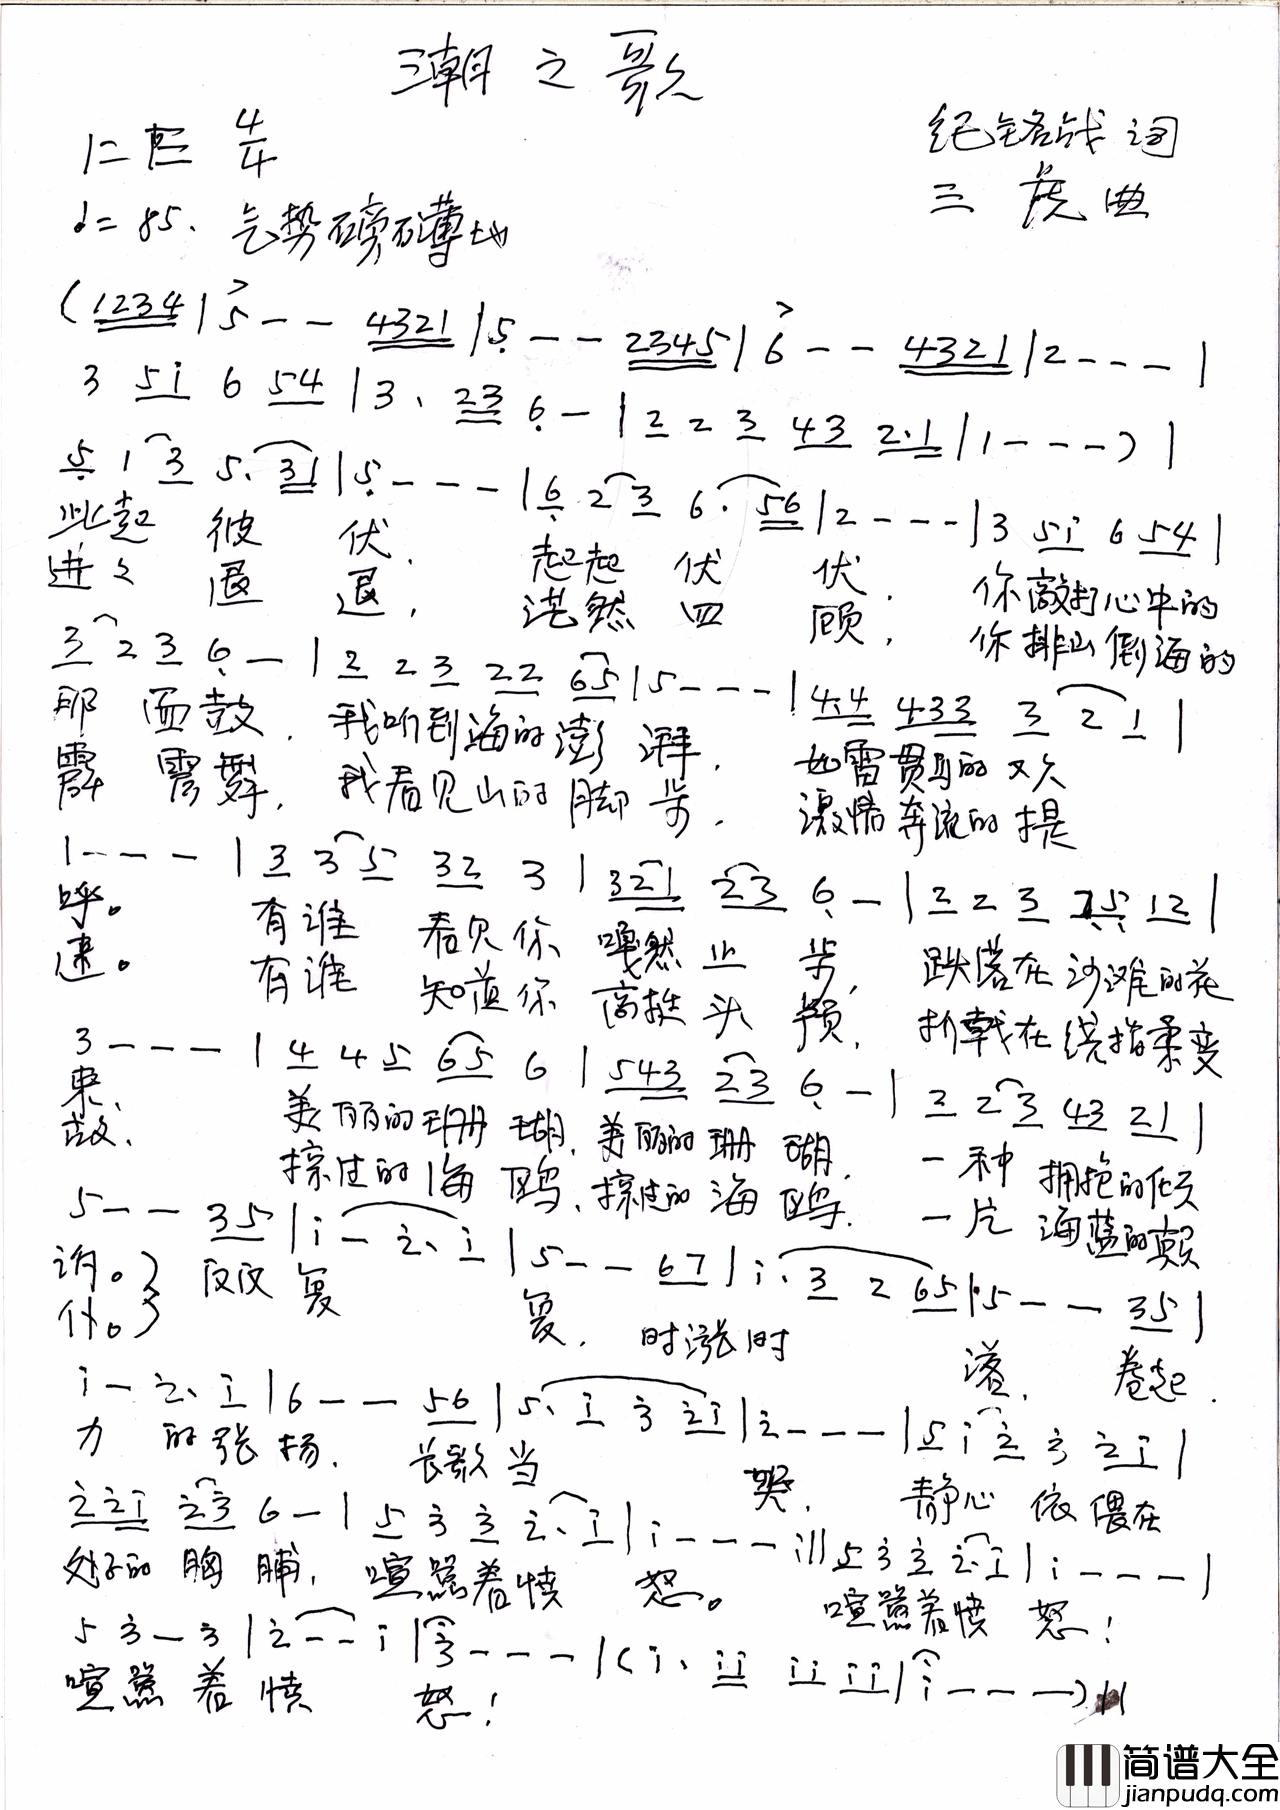 潮之歌
1=E 4/4
纪铭战 词
♩=85. 气势磅礴地
三虎 曲
(1234|5--4321|5--2345|6--4321|2---|
3 5i 6 54|3. 23 6-|2 2 3 43 2.1|1---)|
5 1 3 5. 31|5---|6 2 3 6. 56|2---|3 5i 6 54|
此起 彼 伏. 起起 伏 伏. 你敲打心中的
进々 退 退, 茫然 四 顾, 你排山倒海的
3 2 3 6-|2 2 3 22 65|5---|4.4 433 3 2 1|
那 面鼓. 我听到海的澎 湃. 如雷贯耳的欢
霹雳舞, 我看见山的脚步. 激情奔流的提
1---|3 3 5 32 3|321 23 6-|2 2 3 25 12|
呼。 有谁 看见你 嘎然止 步, 跌落在沙滩的花
速。 有谁 知道你 高挺头 颅, 折戟在绕指柔变
3---|4 4 5 65 6|543 23 6-|2 2 3 43 21|
束、 美丽的珊 瑚, 美丽的珊 瑚. 一种 拥抱的倾
故. 掠过的海 鸥、掠过的海 鸥. 一片 海蓝的
5--35|i-2.i|5--67|i.3 2 65|5--35|
诉。} 反反 复 复. 时涨时 落, 卷起.
仆。}
i-2.i|6--56|5.i 3 2i|2---|5 i 2 3 2i|
力 的张扬. 长歌当 哭. 静心 依偎在
22i 23 6-|5 3 3 2.i|i---:||5 3 3 2.i|i---|
处子的胸脯, 喧嚣着愤 怒。 喧嚣着愤 怒!
5 3-3|2--i|3---|(i. ii ii ii|i---)||
喧嚣着 愤 怒!
简谱大全
jianpudq.com